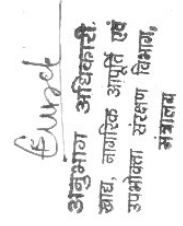 अनुभाग अधिकारी.
खाद्य, नागरिक आपूर्ति एवं
उपभोक्ता संरक्षण विभाग,
मंत्रालय